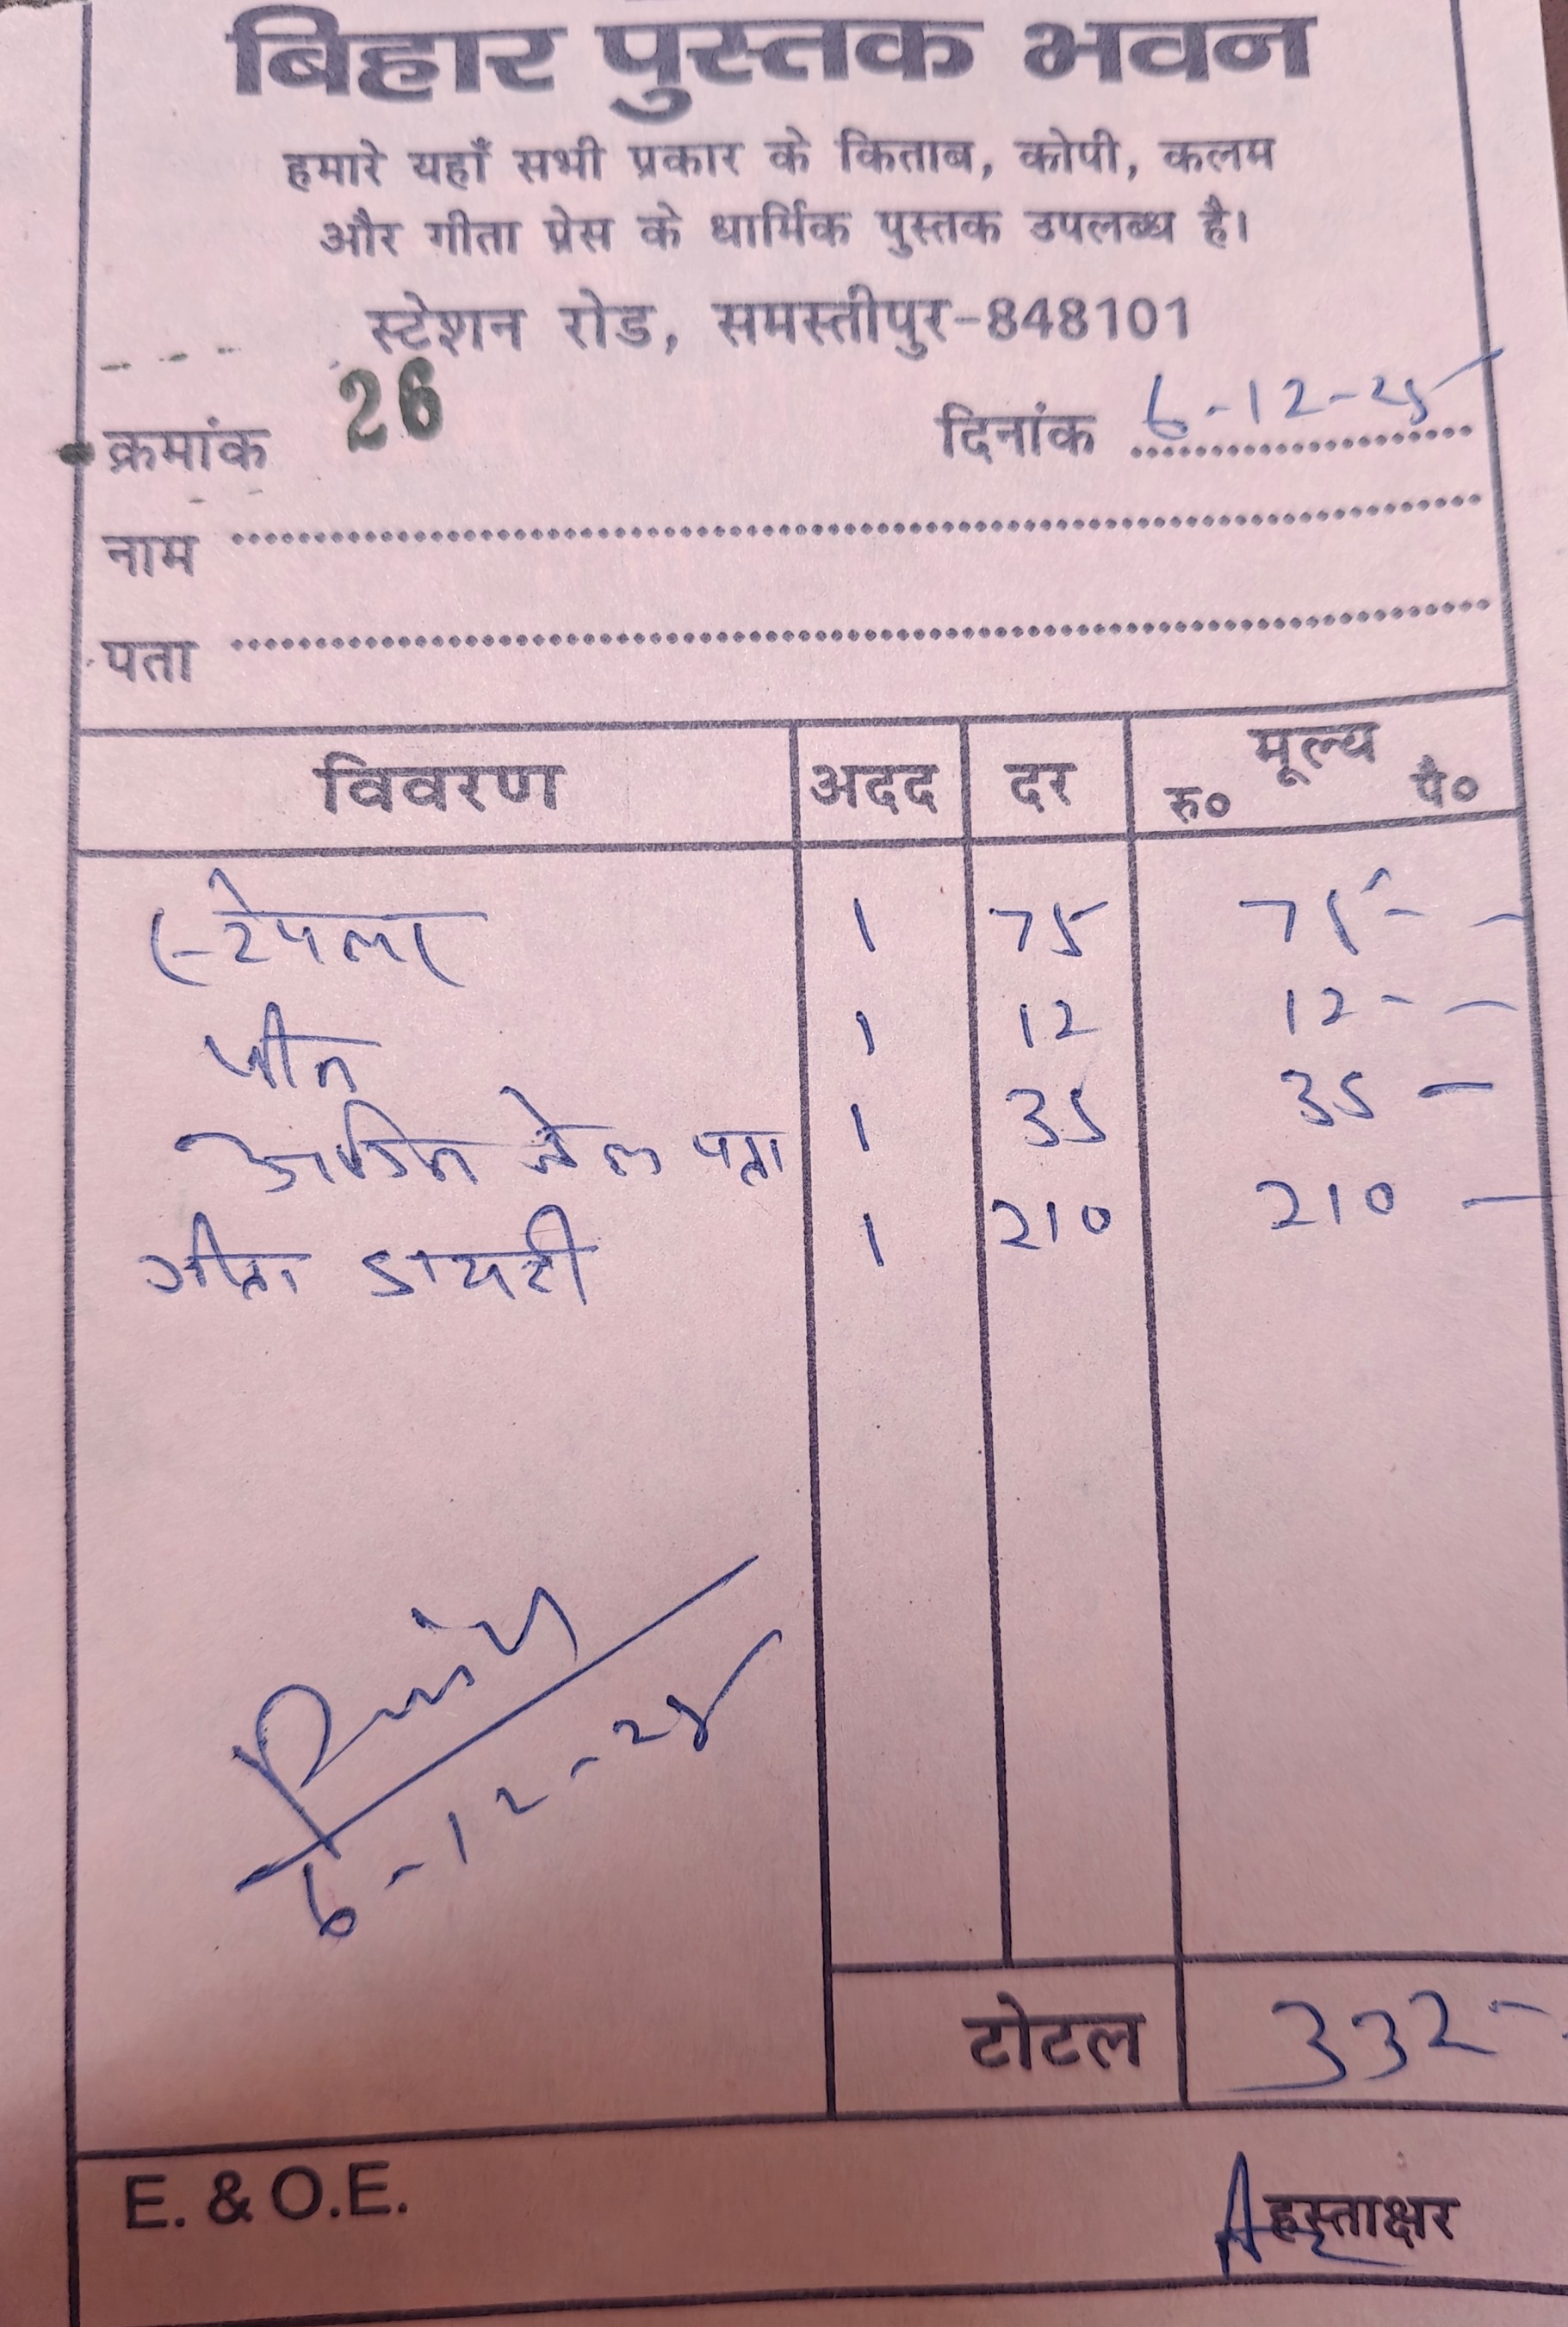 बिहार पुस्तक भवन
हमारे यहाँ सभी प्रकार के किताब, कोपी, कलम
और गीता प्रेस के धार्मिक पुस्तक उपलब्ध है।
स्टेशन रोड, समस्तीपुर-848101
क्रमांक 26 दिनांक 6-12-25
नाम
पता
विवरण अदद दर मूल्य
रु० पै०
स्टेपलर 1 75 75 -
पीन 1 12 12 -
1 35 35 -
गीता डायरी 1 210 210 -
6-12-25
टोटल 332 -
E. & O.E. हस्ताक्षर